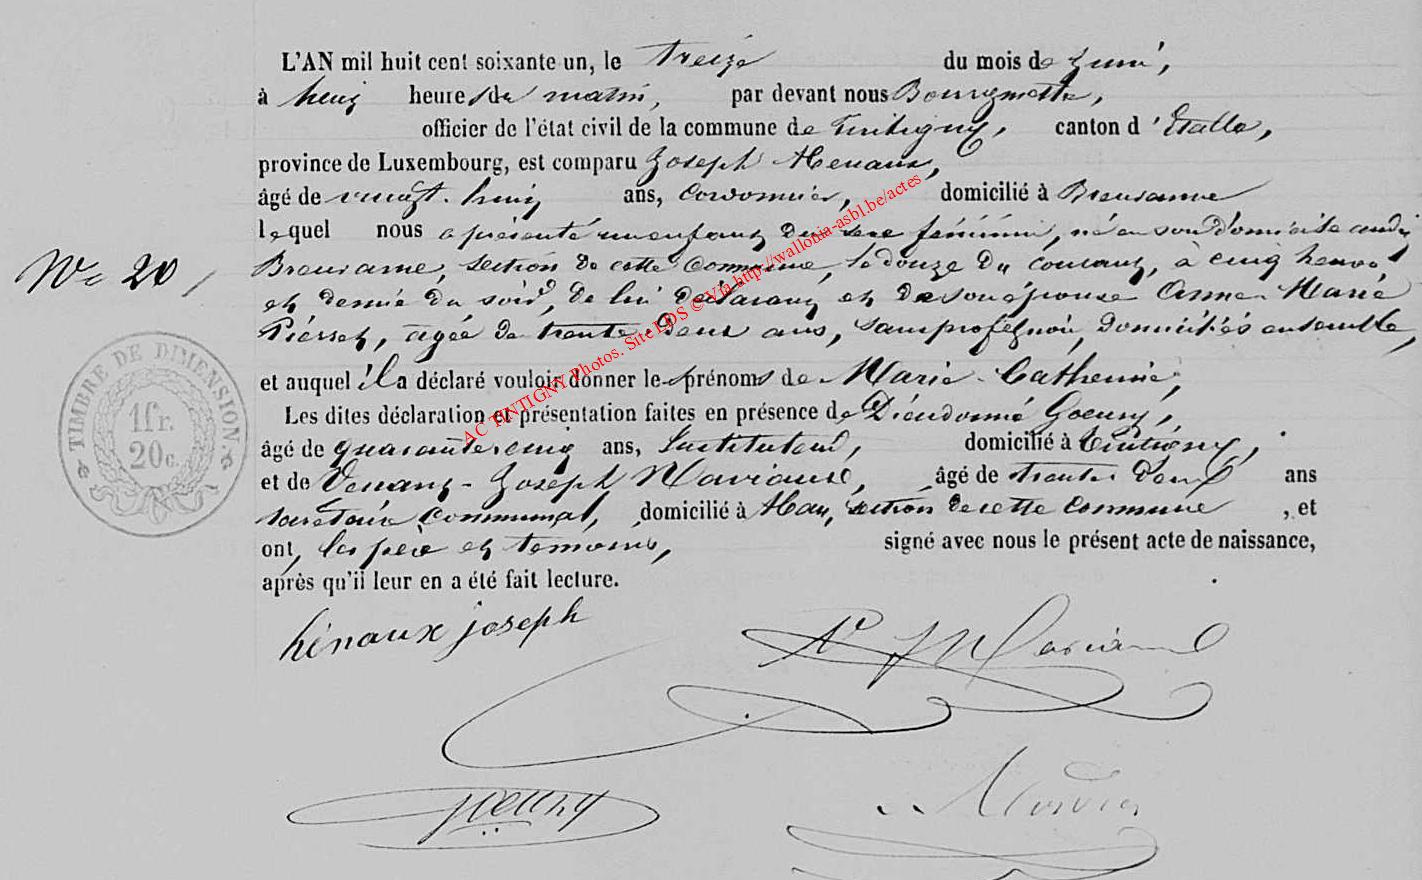 L'AN mil huit cent soixante un, le treize du mois de Juin,
à huit heures du matin, par devant nous Bourgmestre,
officier de l'état civil de la commune de Tintigny, canton d'Etalle,
province de Luxembourg, est comparu Joseph Henaux,
âgé de vingt-huit ans, cordonnier, domicilié à Breuvanne
lequel nous a présenté un enfant du sexe féminin, né en son domicile audit
N° 20
Breuvanne, section de cette commune, le douze du courant, à cinq heures
et demie du soir, de lui déclarant et de son épouse Anne-Marie
Pierret, agée de trente-deux ans, sans profession, domiciliés ensemble,
et auquel il a déclaré vouloir donner les prénoms de Marie-Catherine,
Les dites déclaration et présentation faites en présence de Dieudonné Goeury,
âgé de quarante cinq ans, Instituteur, domicilié à Tintigny,
et de Venant-Joseph Maviance, âgé de trente-deux ans
secrétaire communal, domicilié à Han, section de cette commune, et
ont, les père et témoins, signé avec nous le présent acte de naissance,
après qu'il leur en a été fait lecture.
hénaux joseph
Goeury
TIMBRE DE DIMENSION
1fr.
20c.
AC TINTIGNY Photos. Site LDS © Via http://wallonia-asbl.be/actes